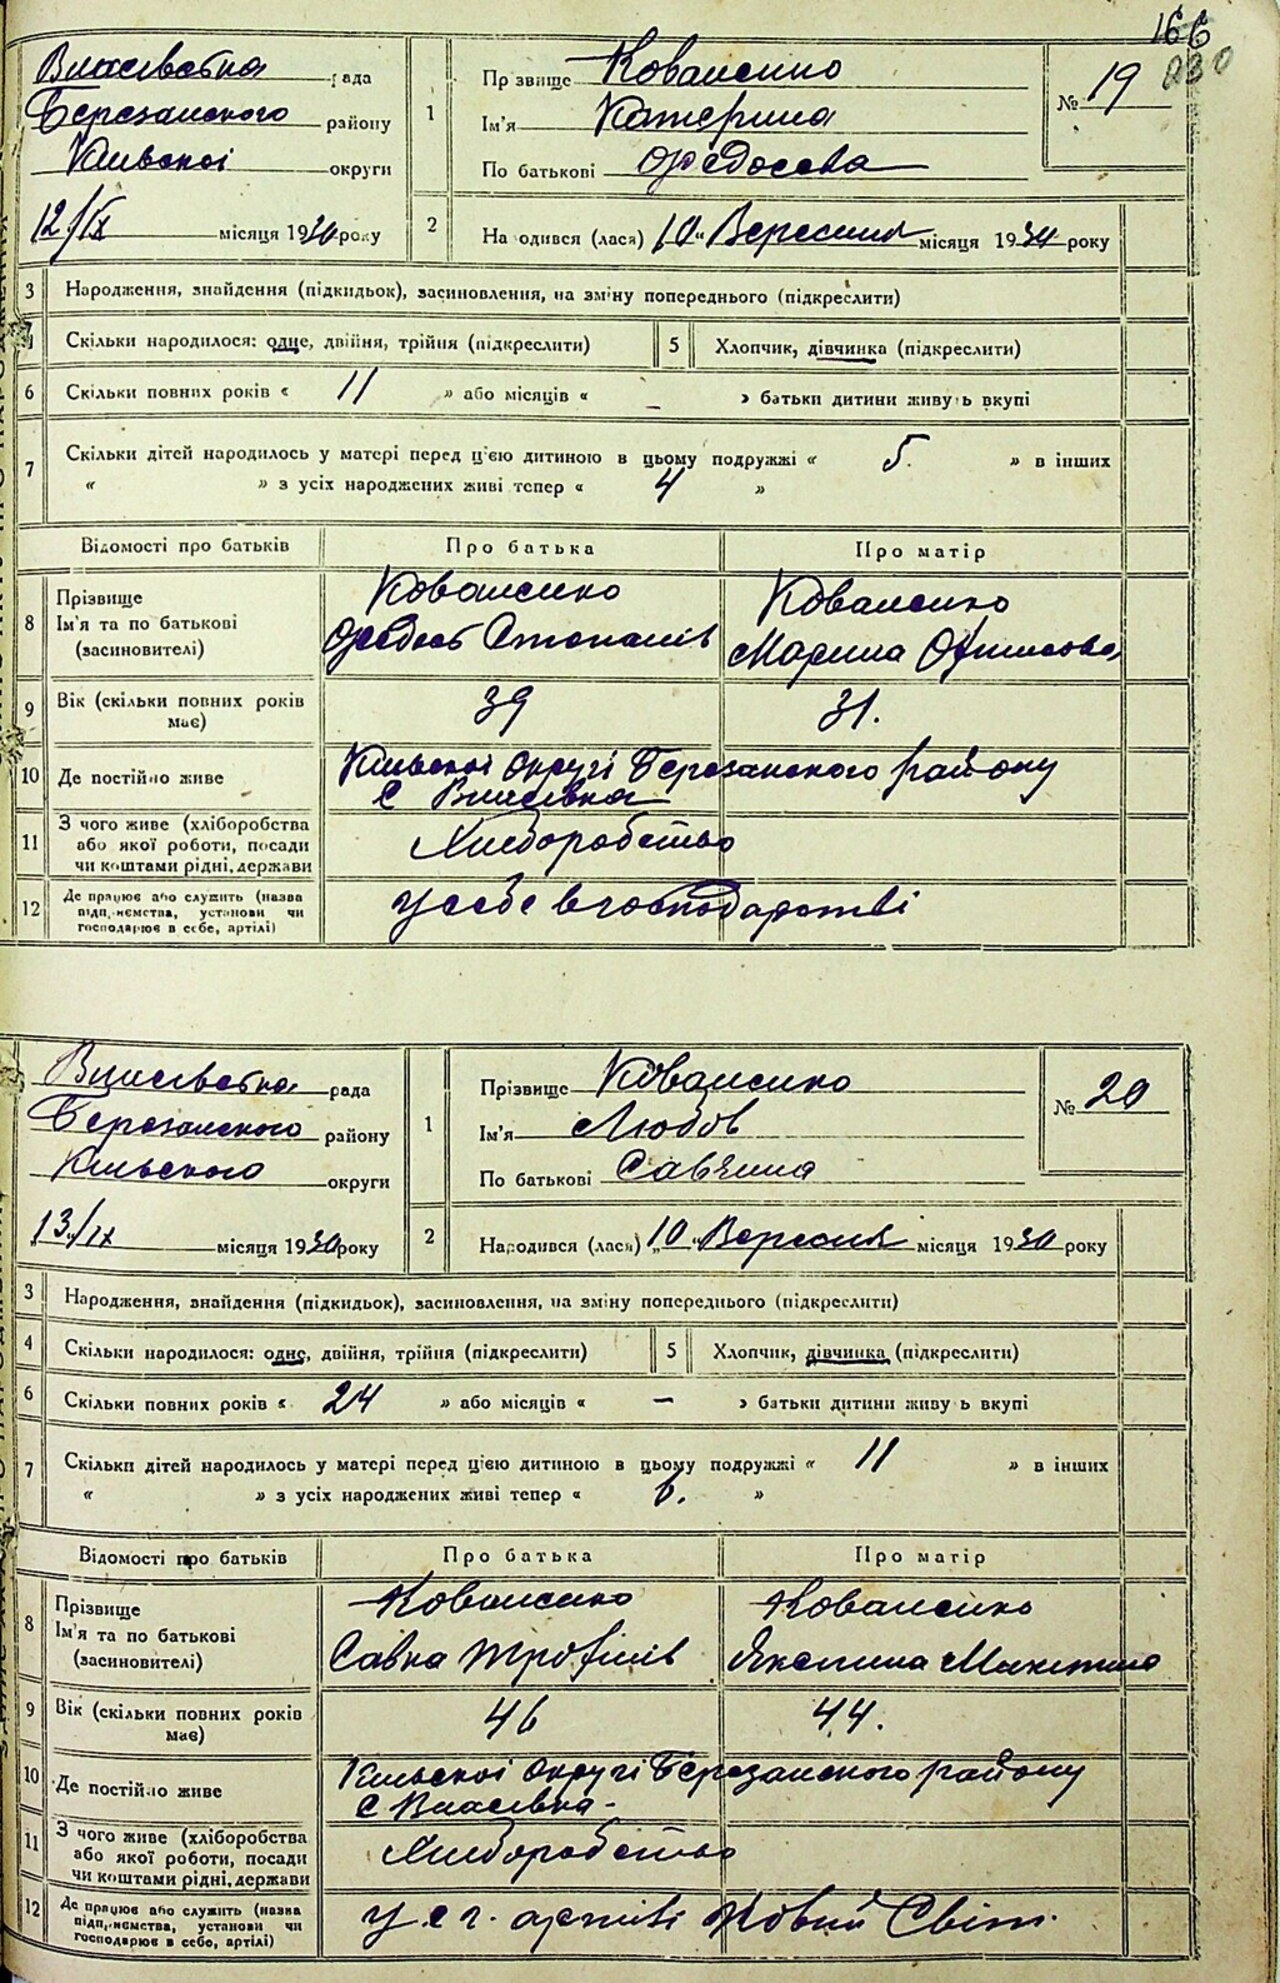 166
230
Власівська рада
Березанського району
Київської округи
12/ІХ місяця 1930 року
1
Прізвище Коваленко
Ім'я Катерина
По батькові Федосєва
№ 19
2
Народився (лася) „10" Вересня місяця 1930 року
3 Народження, знайдення (підкидьок), засиновлення, на зміну попереднього (підкреслити)
4 Скільки народилося: одне, двійня, трійня (підкреслити) 5 Хлопчик, дівчинка (підкреслити)
6 Скільки повних років « 11 » або місяців « – » батьки дитини живуть вкупі
7 Скільки дітей народилось у матері перед цією дитиною в цьому подружжі « 5. » в інших
« » з усіх народжених живі тепер « 4 »
Відомості про батьків Про батька Про матір
8 Прізвище Ім'я та по батькові (засиновителі)
Коваленко Коваленко
Федось Степанів Марина
9 Вік (скільки повних років має) 39 31.
10 Де постійно живе Київської Округі Березанського району
с Власівка
11 З чого живе (хліборобства або якої роботи, посади чи коштами рідні, держави Хліборобство
12 Де працює або служить (назва підприємства, установи чи господарює в себе, артілі) у себе в господарстві
Власівська рада
Березанського району
Київського округи
13/ІХ місяця 1930 року
1
Прізвище Коваленко
Ім'я Любов
По батькові Савчина
№ 20
2
Народився (лася) „10" Вересня місяця 1930 року
3 Народження, знайдення (підкидьок), засиновлення, на зміну попереднього (підкреслити)
4 Скільки народилося: одне, двійня, трійня (підкреслити) 5 Хлопчик, дівчинка (підкреслити)
6 Скільки повних років « 24 » або місяців « – » батьки дитини живуть вкупі
7 Скільки дітей народилось у матері перед цією дитиною в цьому подружжі « 11 » в інших
« » з усіх народжених живі тепер « 6. »
Відомості про батьків Про батька Про матір
8 Прізвище Ім'я та по батькові (засиновителі)
Коваленко Коваленко
Савка Трофімів Якилина Микитина
9 Вік (скільки повних років має) 46 44.
10 Де постійно живе Київської Округі Березанського району
с Власівка -
11 З чого живе (хліборобства або якої роботи, посади чи коштами рідні, держави Хліборобство
12 Де працює або служить (назва підприємства, установи чи господарює в себе, артілі) у с г. артілі Новий Світ.